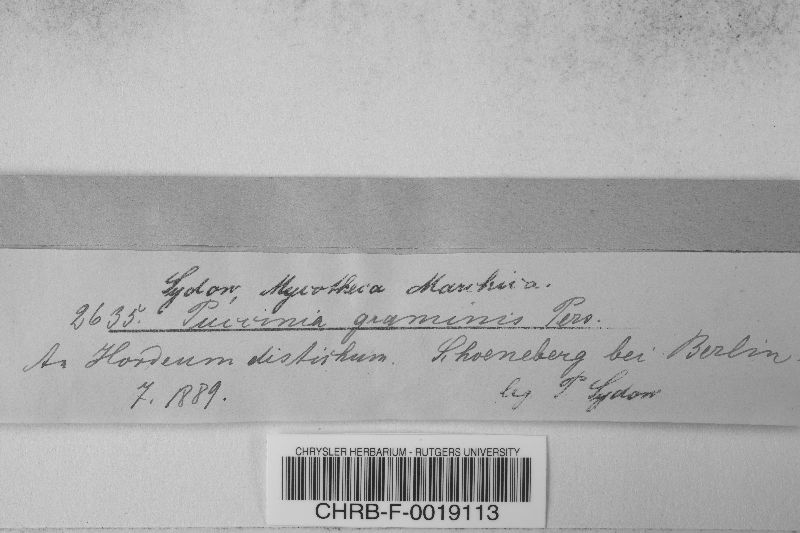 Sydow, Mycotheca Marchica.
2635. Puccinia graminis Pers.
An Hordeum distichum. Schoeneberg bei Berlin.
7. 1889. leg P Sydow
CHRYSLER HERBARIUM - RUTGERS UNIVERSITY
CHRB-F-0019113